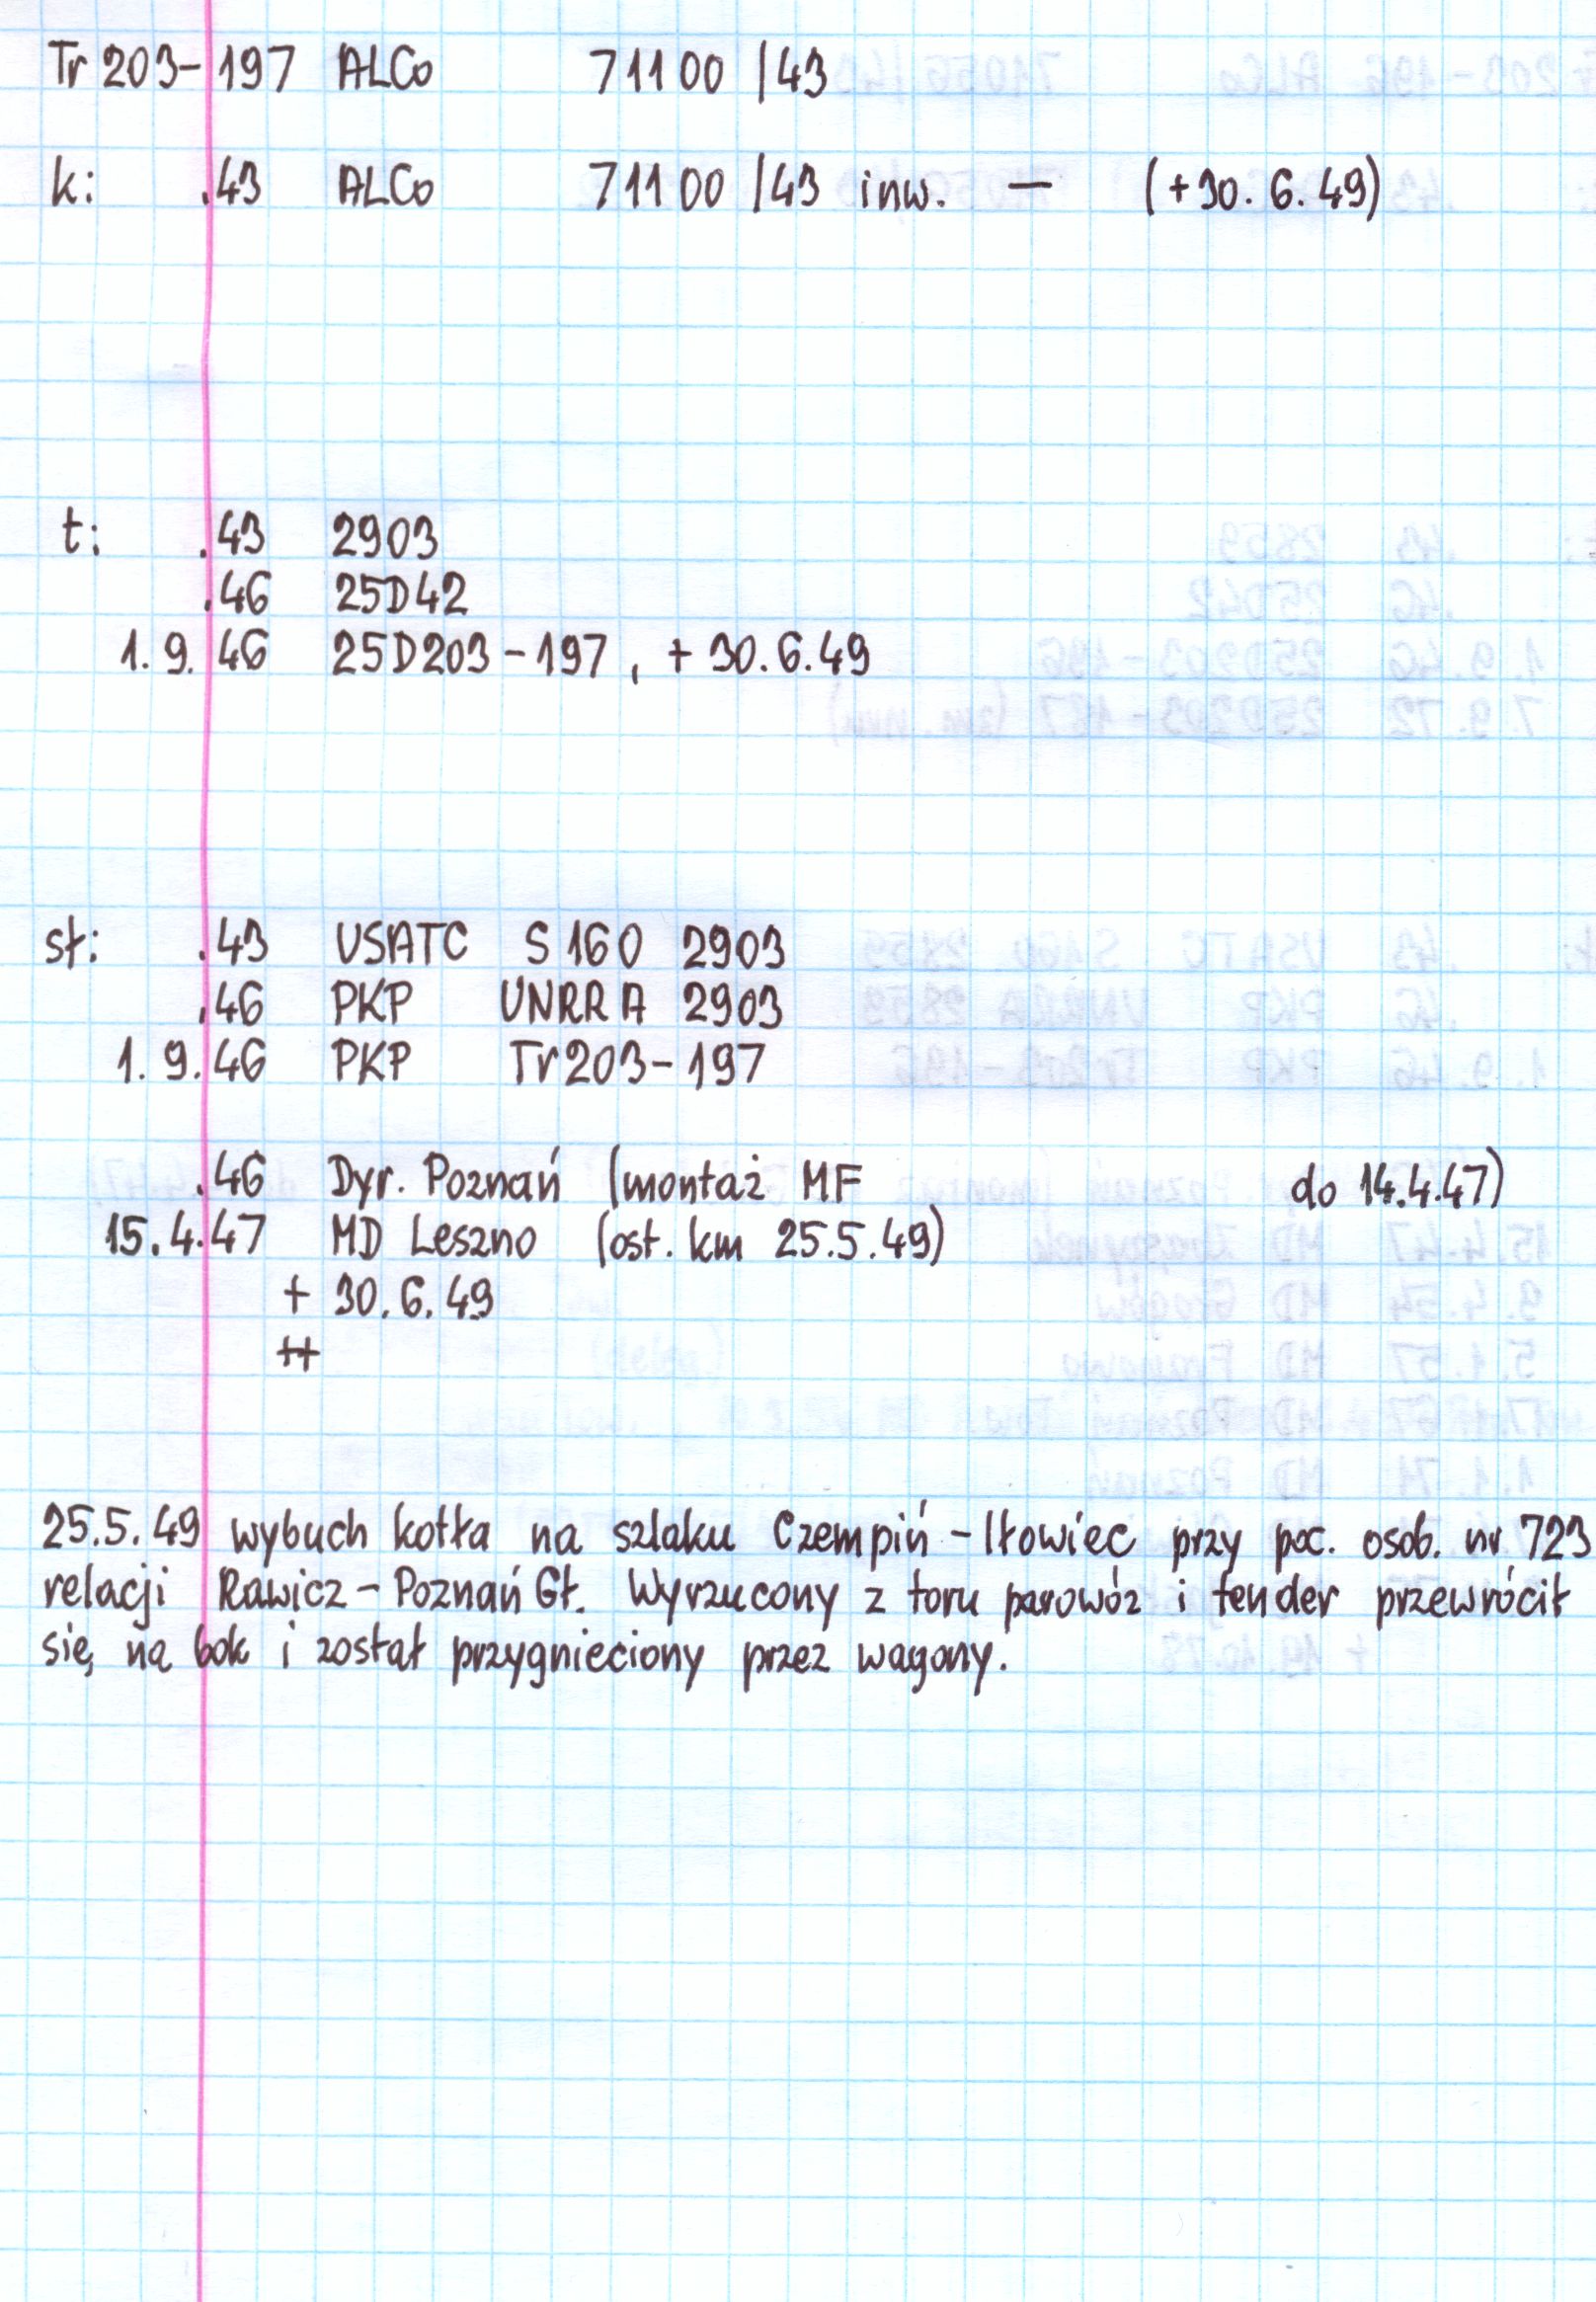 Tr 203-197 ALCo 71100 /43
k: .43 ALCo 71100 /43 inw. — (+30.6.49)
t: .43 2903
.46 25D42
1.9.46 25D203-197, +30.6.49
st: .43 USATC S160 2903
.46 PKP UNRRA 2903
1.9.46 PKP Tr203-197
.46 Dyr. Poznań (montaż MF do 14.4.47)
15.4.47 MD Leszno (ost. km 25.5.49)
+ 30.6.49
++
25.5.49 wybuch kotła na szlaku Czempiń-Iłowiec przy poc. osob. nr 723
relacji Rawicz-Poznań Gł. Wyrzucony z toru parowóz i tender przewrócił
się na bok i został przygnieciony przez wagony.